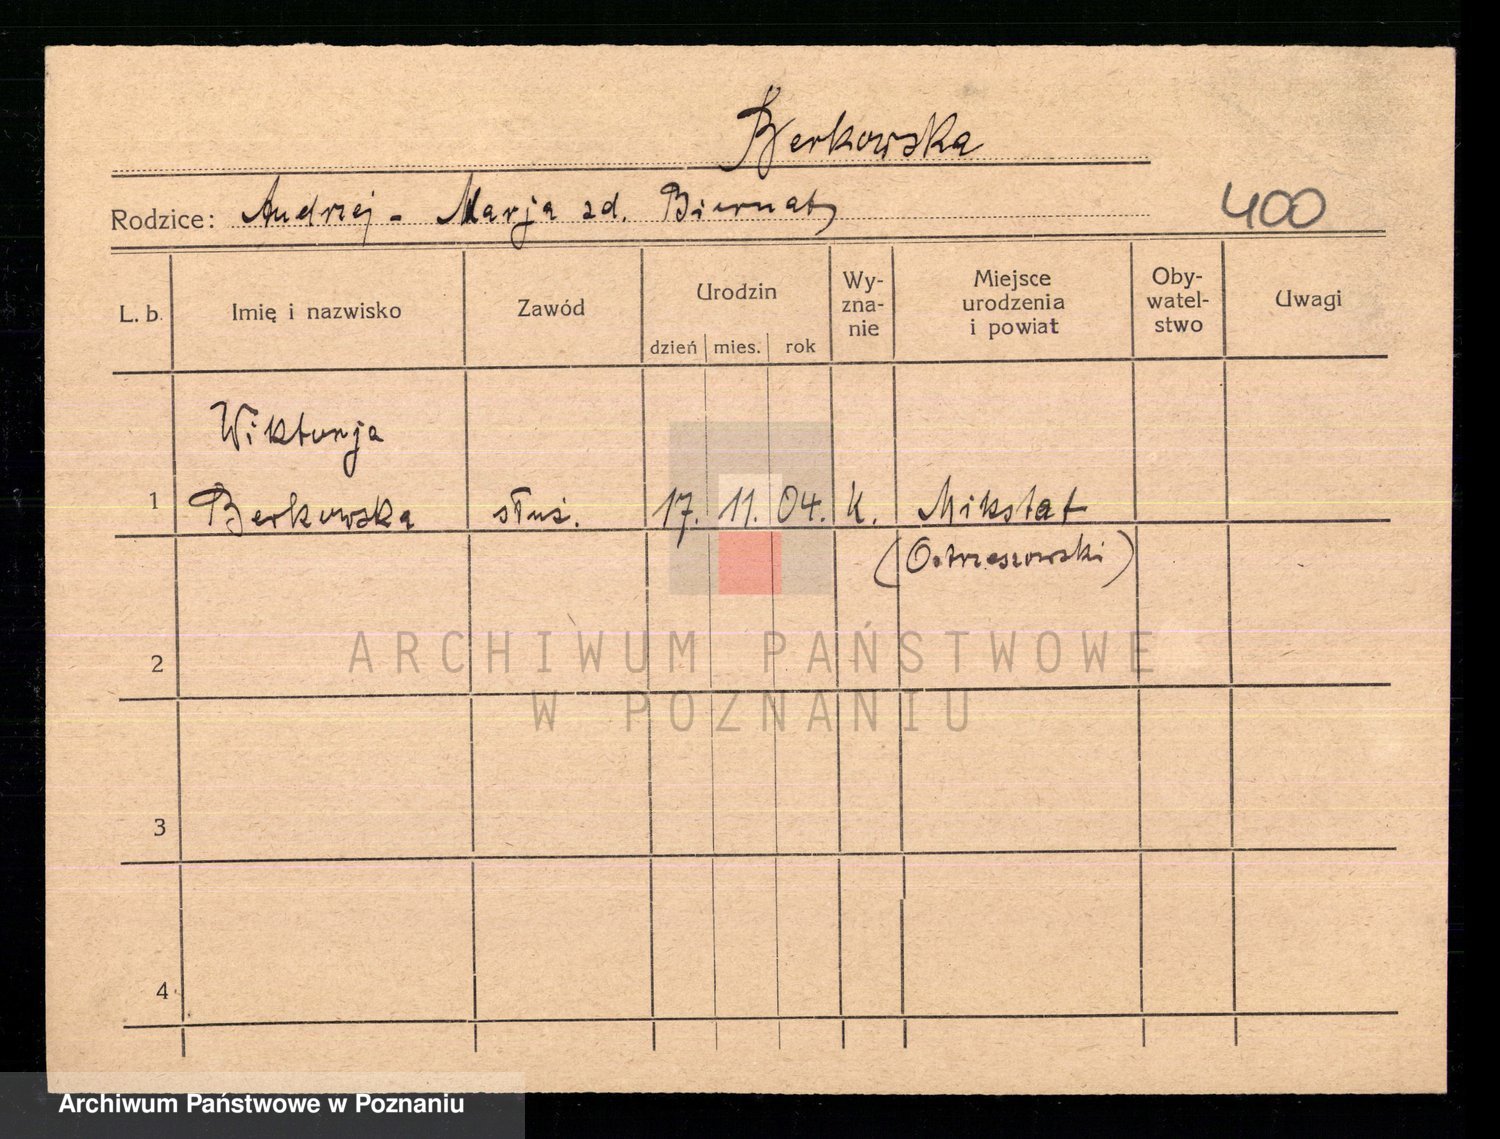 Berkowska
Rodzice: Andrzej - Marja zd. Biernat
400
L. b. Imię i nazwisko Zawód Urodzin dzień mies. rok Wy-zna-nie Miejsce urodzenia i powiat Oby-watel-stwo Uwagi
Wiktorja
1 Berkowska służ. 17. 11. 04. k. Mikstat
(Ostrzeszowski)
2
3
4
ARCHIWUM PAŃSTWOWE
W POZNANIU
Archiwum Państwowe w Poznaniu